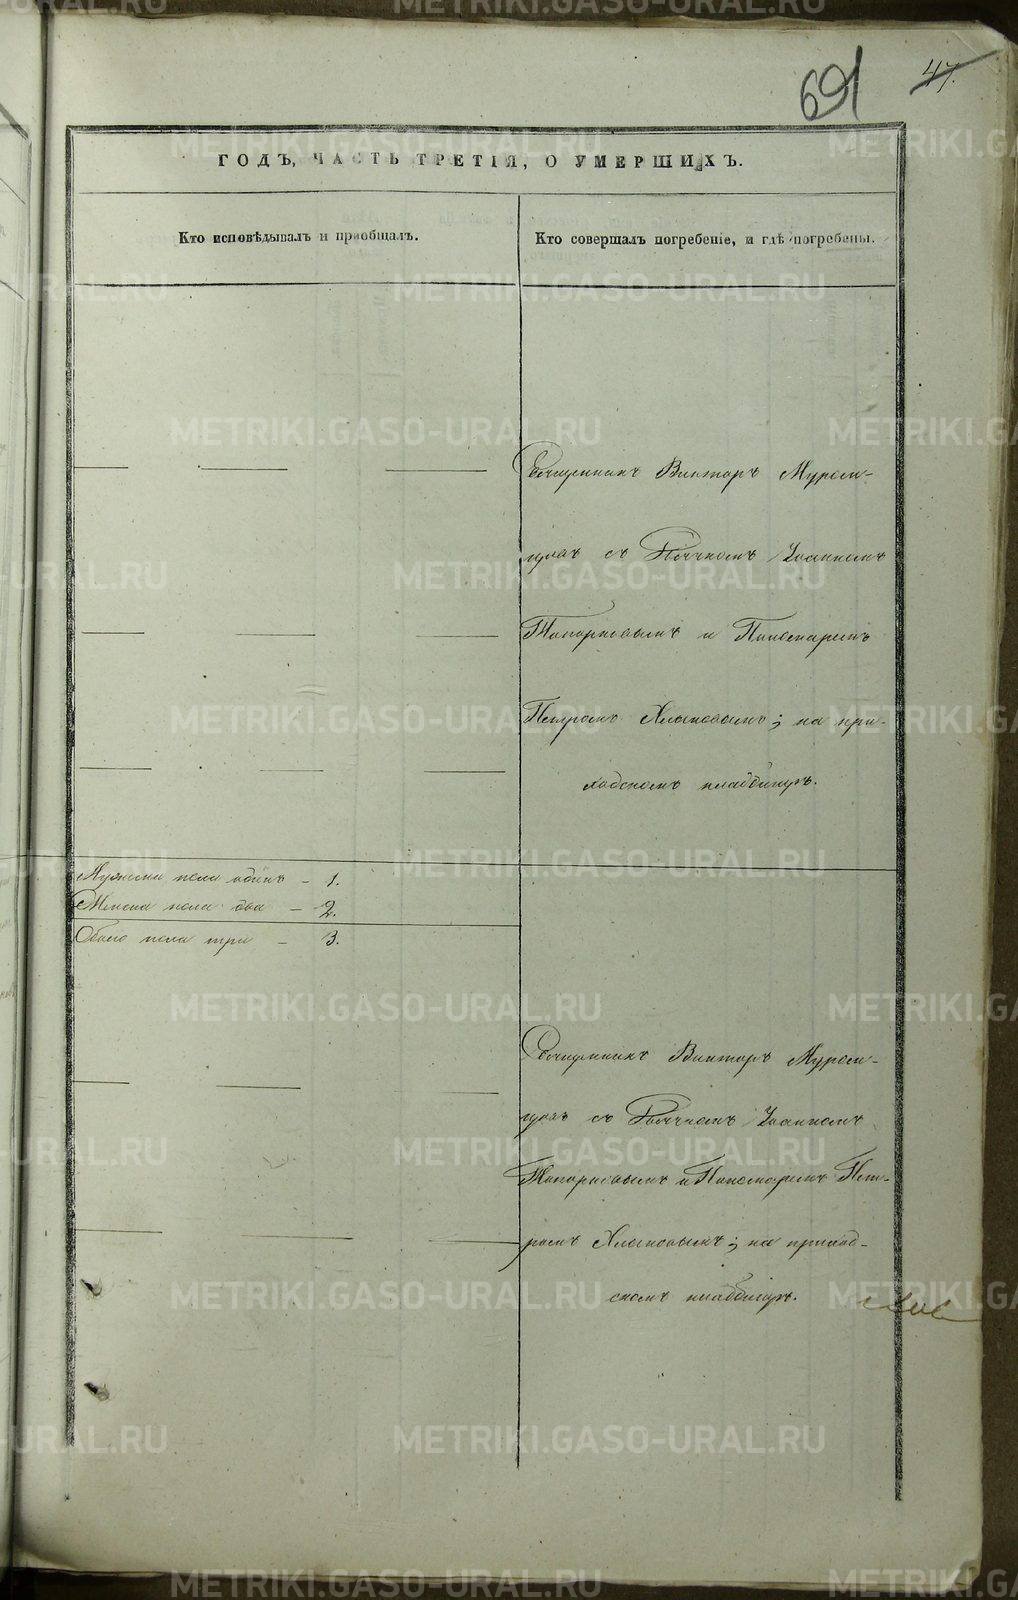 691
47.
ГОДЪ, ЧАСТЬ ТРЕТІЯ, О УМЕРШИХЪ.
Кто исповѣдывалъ и приобщалъ.
Кто совершалъ погребеніе, и гдѣ погребены.
Священникъ Викторъ Муром-
цовъ съ Іоанномъ
Топорковымъ и Пономаремъ
Петромъ Хлыновымъ; на при-
ходскомъ кладбищѣ.
Мужска пола одинъ – 1.
Женска пола два – 2.
Обоего пола три – 3.
Священникъ Викторъ Муром-
цовъ съ Іоанномъ
Топорковымъ и Пономаремъ Пет-
ромъ Хлыновымъ; на приход-
скомъ кладбищѣ.
METRIKI.GASO-URAL.RU